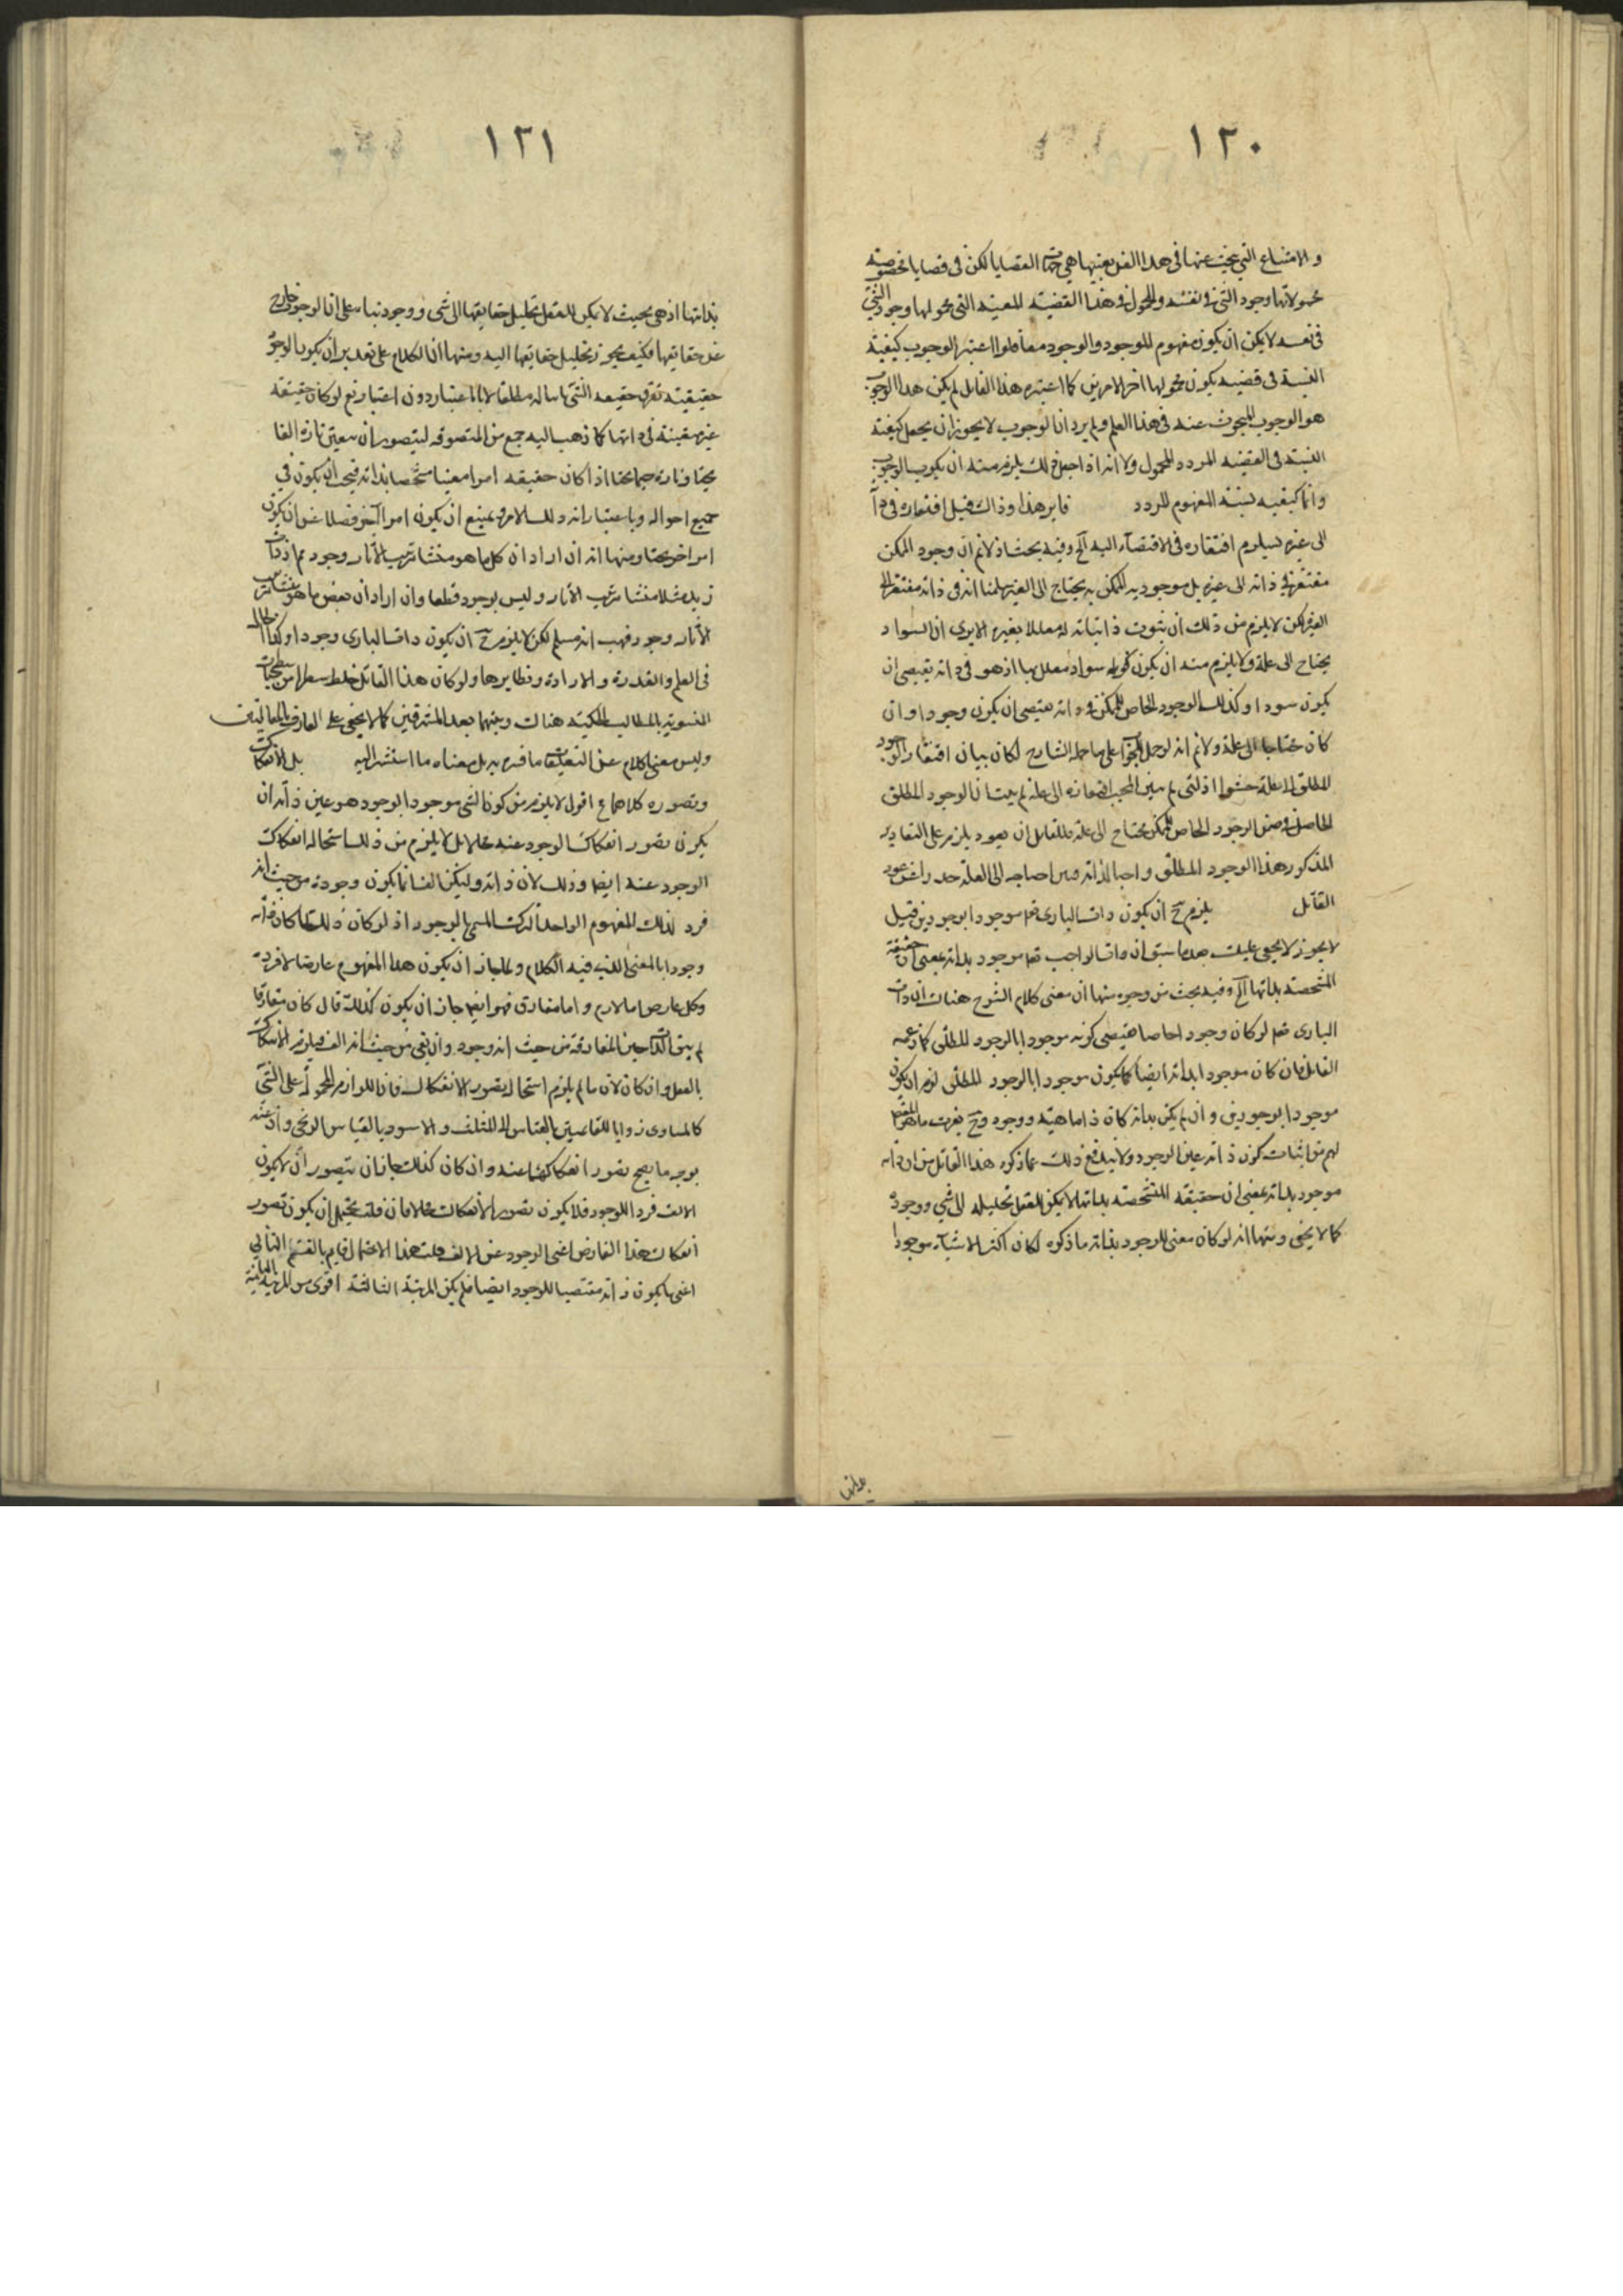 ١٢٠
والامتناع التي يبحث عنها في هذا الفن بعينها هي جهات القضايا لكن في قضايا مخصوصة
محمولاتها وجود الشي في نفسه والمحمول في هذا القضية المعينة التي محمولها وجود الشي
في نفسه لا يمكن ان يكون مفهوم للوجود والوجود معا فلو اعتبر الوجوب كيفية
النسبة في قضية يكون محمولها احد الامرين كما اعتبره هذا القايل لم يكن هذا الوجوب
هو الوجوب المبحوث عنه في هذا العلم ولم يرد ان الوجوب لا يجوز ان يجعل كيفية
النسبة في القضية المردد المحمول ولا انه اذا جعل كذلك يلزم منه ان يكون الوجوب
وانما كيفيه نسبة المفهوم المردد فاين هذا وذاك قيل افتقاره في
الى غيره يستلزم افتقاره في الاقتضاء اليه آلخ وفيه بحث اذ لانم ان وجود الممكن
مفتقر في ذاته الى غيره بل موجوديه الممكن به يحتاج الى الغير سلمنا انه في ذاته مفتقر الى
الغير لكن لا يلزم من ذلك ان ثبوت ذاتياته له معللا بغيره الا يرى ان السواد
يحتاج الى علة ولا يلزم منه ان يكون كونه سواد معلل بها اذ هو في ذاته يقتضى ان
يكون سودا وكذلك الوجود الخاص للممكن في ذاته يقتضى ان يكون وجودا وان
كان محتاجا الى علة ولانم انه لو حمل على ما حمله الشارح لكان بيان افتقار الوجود
المطلق الى علة حشوا اذ لم يبين افتقاره الى علة لم يثبت ان الوجود المطلق
الحاصل في ضمن الوجود الخاص للممكن محتاج الى علة فللقايل ان يعود يلزم على التقادير
المذكور هذا الوجود المطلق واجبا لذاته فبين احتياجه الى العلة
القائل يلزم ح ان يكون ذات البارى تعم موجودا بوجودين قيل
لا يجوز لا يخفى عليك بعد ما سبق ان ذات الواجب تعم موجود بذاته بمعنى ان حقيقة
المشخصة بذاتها آلخ وفيه بحث من وجوه منها ان معنى كلام الشرح هناك ان ذات
البارى تعم لو كان وجودا خاصا يقتضى كونه موجودا بالوجود المطلق كما زعمه
القايل فان كان موجودا بذاته ايضا كما يكون موجودا بالوجود المطلق لزم ان يكون
موجودا بوجودين وان لم يكن بذاته كان ذا ماهية ووجود وح يفوت ما هو المقصود
لهم من اثبات كون ذاته عين الوجود ولا يندفع ذلك بما ذكره هذا القائل من ان ذاته
موجود بذاته بمعنى ان حقيقة المشخصة بذاتها لا يمكن للعقل تحليله الى شي ووجود
كما لا يخفى ومنها انه لو كان معنى الموجود بذاته ما ذكره لكان اكثر الاشياء موجودا
بذاتها
١٢١
بذاتها اذ هي بحيث لا يمكن للعقل تحليل حقايقها الى شي ووجود بناء على ان الوجود خارج
عن حقايقها فكيف يجوز تحليل حقايقها اليه ومنها ان الكلام على تقدير ان يكون الوجود
حقيقية تفرق حقيقة الشي مطلقا لا باعتبار دون اعتبار نعم لو كان حقيقة
غير معينة في ذاتها كما ذهب اليه جمع من المتصوفه ليتصور ان يتعين تارة الفا
بحتا وتارة جيما بحتا اذا كان حقيقه امرا معينا مشخصا بذاته فيجب ان يكون في
جميع احواله وباعتبار انه ذلك الامر ويمتنع ان يكون امرا آخر فضلا عن ان يكون
امرا آخر بحتا ومنها انه ان اراد ان كل ما هو منشا ترتب الآثار وجود مم اذ ذات
زيد مثلا منشا ترتب الآثار وليس بوجود قطعا وان اراد ان بعض ما هو منشا ترتب
الآثار وجود فهب انه مسلم لكن لا يلزم ح ان يكون ذات البارى وجودا وكذا الحال
في العلم والقدرة والارادة ونظايرها ولو كان هذا القائل خلط
المنسوبة بالمطالب الحكمية هناك وبينهما بعد المشرقين كما لا يخفى على العارف
وليس معنى كلام عن التعليقات ما فسره به بل معناه ما استشر اليه بل الانفكاك
وتصوره كلاهما ع اقول لا يلزم من كون الشي موجودا بوجود هو عين ذاته ان
يكون تصور انفكاك الوجود عنه محالا بل لا يلزم من ذلك استحاله انفكاك
الوجود عنه ايضا وذلك لان ذاته وليكن الفا انما يكون وجوده من حيث انه
فرد لذلك المفهوم الواحد المشترك المسمى بالوجود اذ لو كان ذلك لما كان ذاته
وجودا بالمعنى الذي فيه الكلام ولما جاز ان يكون هذا المفهوم عارضا لافراده
وكل عارض اما لازم واما مفارق فهو ايضا جاز ان يكون كذلك قال كان مفارقا
لم يبق الذات حين المفارقة من حيث انه وجود وان بقى من حيث انه الف فيلزم الانفكاك
بالفعل وان كان لازما لم يلزم استحالة تصور الانفكاك فان اللوازم المحمولة على الشي
كالمساوى زوايا للقائمتين بالقياس الى المثلث والاسود بالقياس الزنجى وان عنه
بوجه ما يصح تصور انفكاكها عنه وان كان كذلك جاز ان يتصور ان لا يكون
الالف فردا للوجود فلا يكون تصور الانفكاك محالا فان قلت يحتمل ان يكون تصور
انفكاك هذا العارض اعنى الوجود عن الالف قلت هذا الاحتمال قايم بالقسم الثاني
اعنى ما يكون ذاته مقتضيا للوجود ايضا فلم يكن المرتبة الثالثة اقوى من المرتبة الثانية